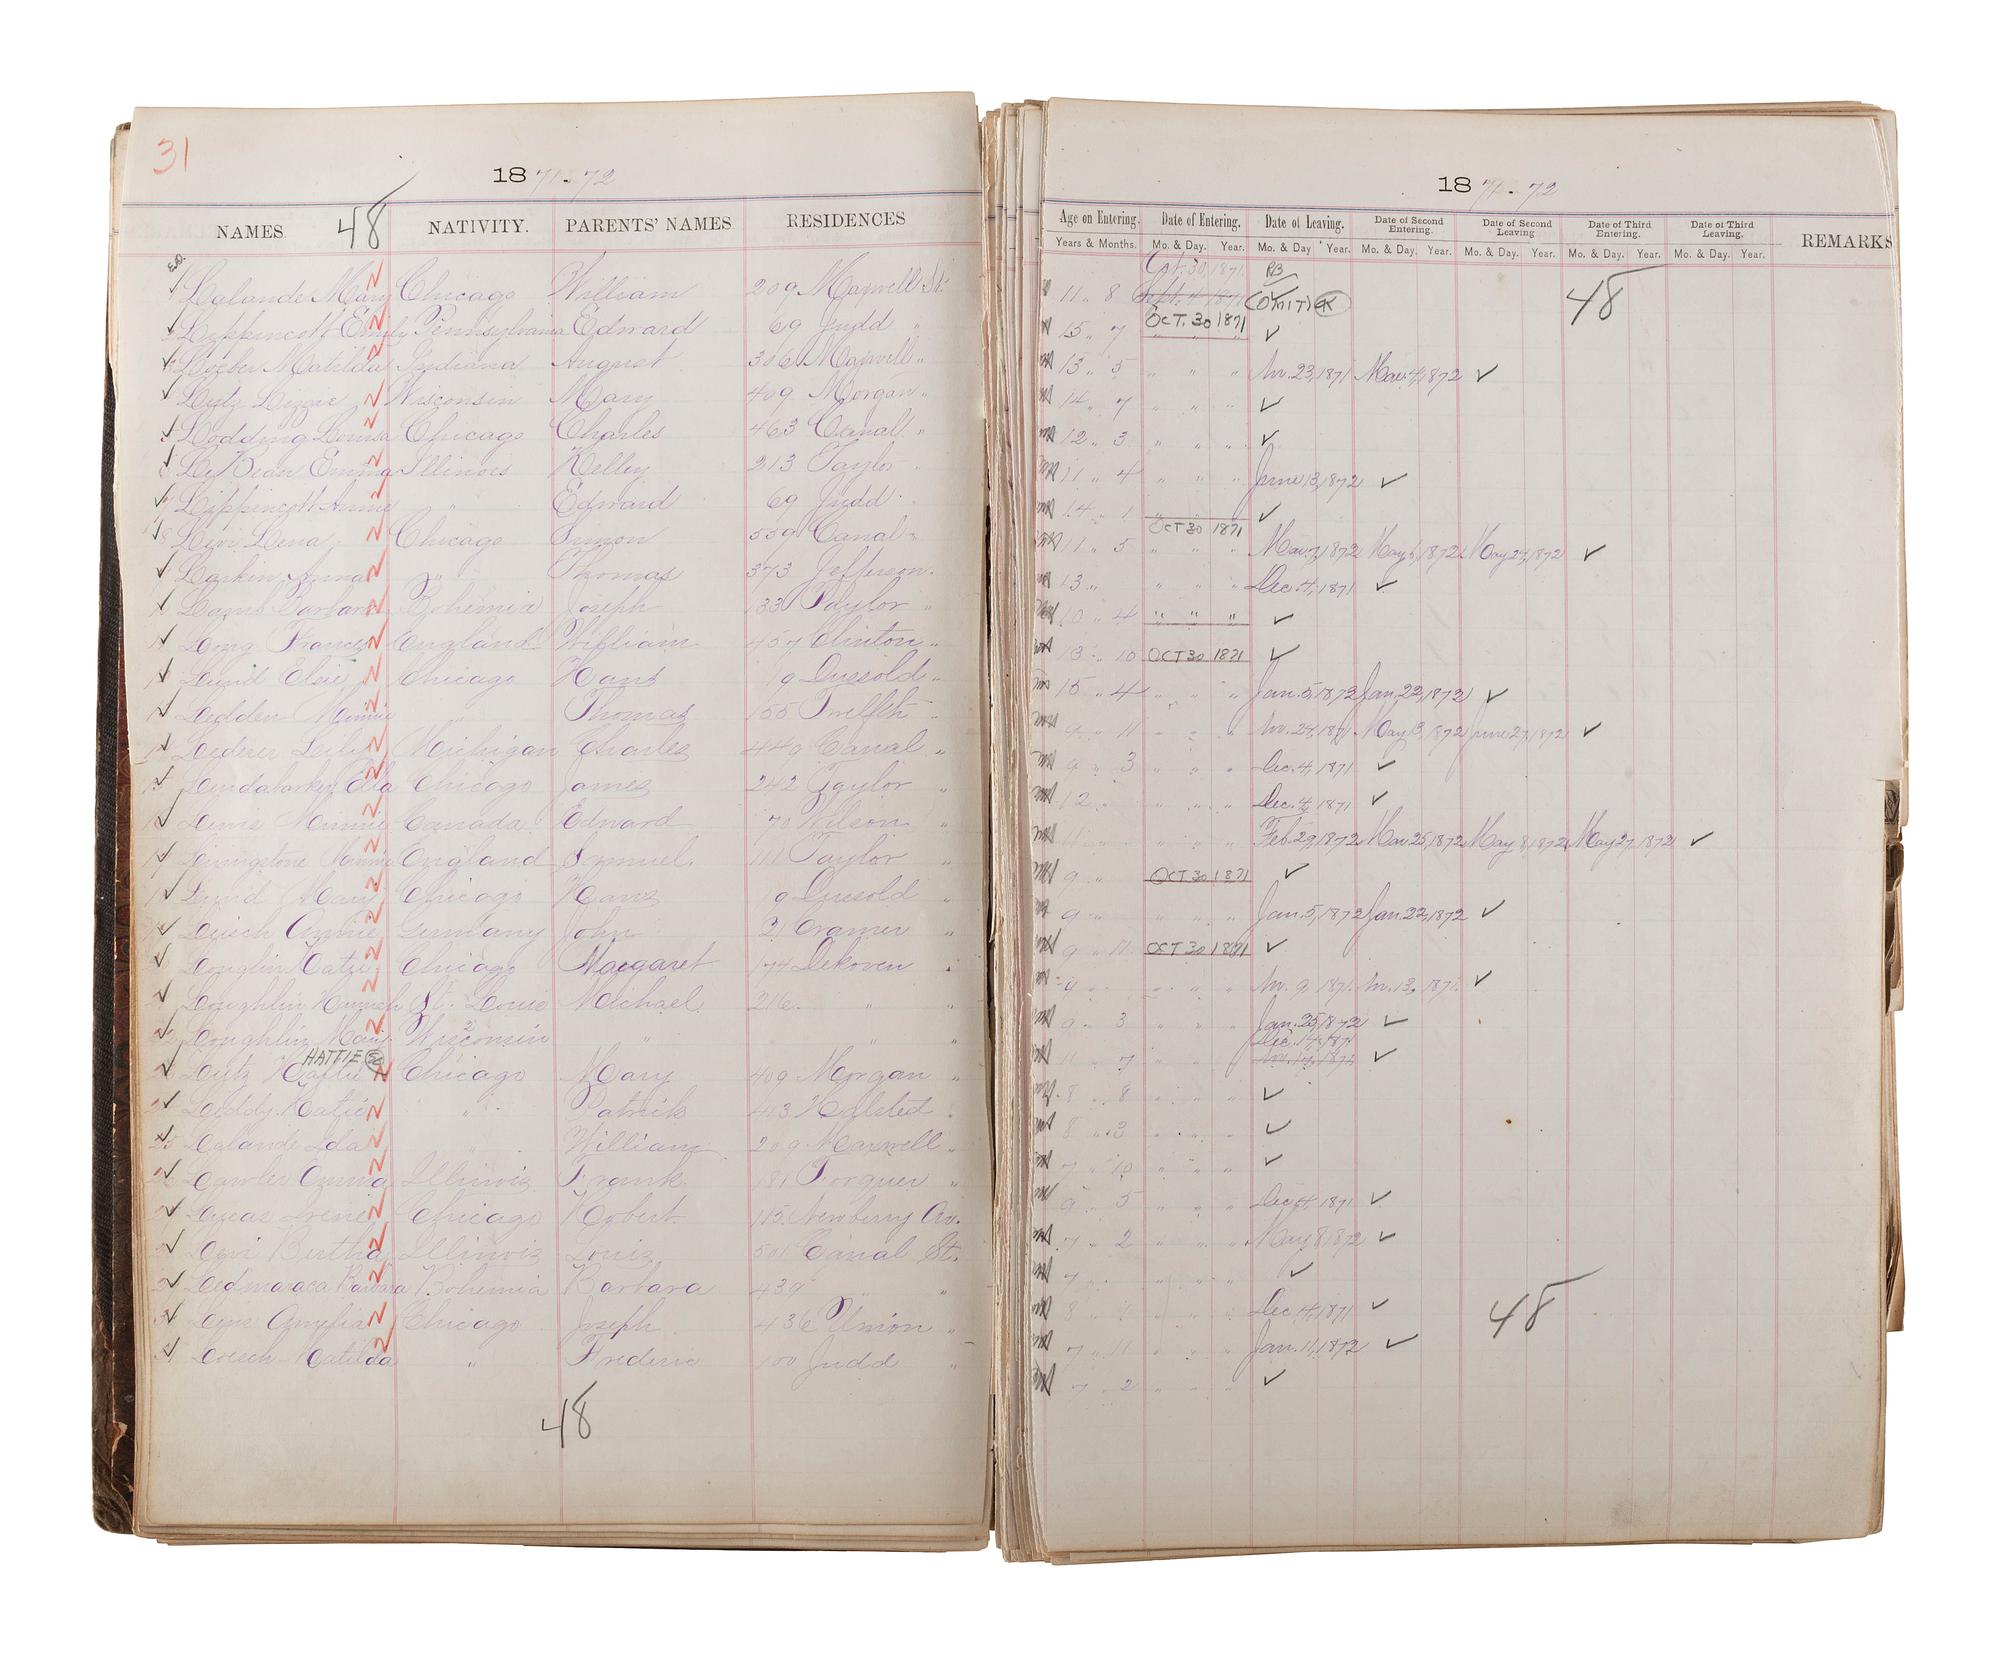 31
18 71-72
NAMES 48 NATIVITY. PARENTS' NAMES RESIDENCES
Lalande Mary Chicago William 209 Maxwell St.
Lippincott Emily Pennsylvania Edward 69 Judd "
Loeber Matilda Indiana August 306 Maxwell "
Lutz Lizzie Wisconsin Mary 409 Morgan "
Lodding Louisa Chicago Charles 463 Canal "
Le Bean Emma Illinois Kelley 213 Taylor "
Lippincott Annie " Edward 69 Judd "
Levi Lena Chicago Simon 559 Canal "
Larkin Anna " Thomas 373 Jefferson "
Lamb Barbara Bohemia Joseph 133 Taylor "
Long Frances England William 457 Clinton "
Lund Elsie Chicago Hans 9 Dussold "
Ledden Minnie " Thomas 155 Twelfth "
Lederer Lily Michigan Charles 440 Canal "
Ella Chicago James 242 Taylor "
Lewis Minnie Canada Edward 70 Wilson "
Livingstone Minnie England Samuel 111 Taylor "
Lund Mary Chicago Hans 9 Dussold "
Leisch Annie Germany John 21 Cramer "
Loughlin Katie Chicago Margaret 174 Dekoven "
Loughlin Hannah St. Louis Michael 216 " "
Loughlin Mary Wisconsin " " "
HATTIE
Lutz Hattie Chicago Mary 409 Morgan "
Liddy Katie " Patrick 413 Halsted "
Lalande Ida " William 209 Maxwell "
Lawler Emma Illinois Frank 181 Forquer "
Lucas Irene Chicago Robert 115 Newberry Av.
Levi Bertha Illinois Louis 501 Canal St.
Barbara Bohemia Barbara 439 " "
Amelia Chicago Joseph 436 Union "
Loesch Matilda " Frederic 100 Judd "
48
18 71-72
Age on Entering. Date of Entering. Date of Leaving. Date of Second Entering. Date of Second Leaving Date of Third Entering. Date of Third Leaving. REMARKS
Years & Months. Mo. & Day. Year. Mo. & Day Year. Mo. & Day. Year. Mo. & Day. Year. Mo. & Day. Year. Mo. & Day. Year.
Oct. 30, 1871.
11 " 8 Sept. 4 1871 (OMIT) 48
OCT. 30 1871
15 " 7 " " "
13 " 5 " " " Nov. 23, 1871 Mar. 4, 1872
14 " 7 " " "
12 " 3 " " "
11 " 4 " " " June 13, 1872
14 " 1 " " "
OCT 30 1871
11 " 5 " " " Mar. 7, 1872 May 6, 1872 May 27, 1872
13 " " " " Dec. 4, 1871
10 " 4 " " "
13 " 10 OCT 30 1871
15 " 4 " " " Jan. 5, 1872 Jan. 22, 1872
9 " 11 " " " Nov. 27, 1871 May 13, 1872 June 27, 1872
9 " 3 " " " Dec. 4, 1871
12 " " " " Dec. 4, 1871
11 " " " " Feb. 29, 1872 Mar 25, 1872 May 8, 1872 May 27, 1872
9 " OCT 30 1871
9 " " " " Jan. 5, 1872 Jan. 22, 1872
9 " 11 OCT 30 1871
" " " Nov. 9, 1871. Nov. 13, 1871.
9 " 3 " " " Jan. 25, 1872
Dec. 14, 1871
11 " 7 " " " Nov. 17, 1871
8 " 8 " " "
8 " 3 " " "
7 " 10 " " "
9 " 5 " " " Dec. 4, 1871
7 " 2 " " " May 8, 1872
7 " " " "
8 " " " " Dec. 4, 1871 48
7 " 11 " " " Jan. 11, 1872
7 " 2 " " "